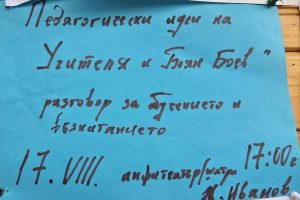 Педагогически идеи на
Учителя и Боян Боев"
разговор за обучението и
възпитанието
17. VIII. амфитеатър/шатра 17:00 ч
К. Иванов